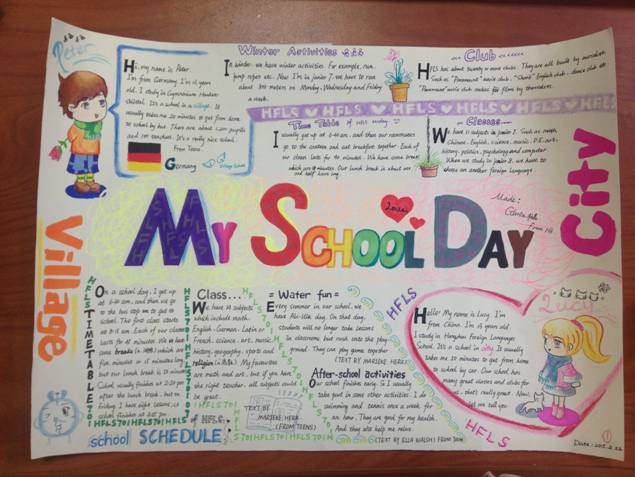 Peter
Hi, my name is Peter.
I'm from Germany. I'm 14 years
old. I study in Gymnasium
School. It's a school in a village. It
usually takes me 20 minutes to get from home
to school by bus. There are about 1,200 pupils
and 100 teachers. It's a really nice school.
From Teens
Germany
Winter Activities
In winter, we have winter activities. For example, run,
jump ropes etc. Now I'm in junior 7. We have to run
about 800 meters on Monday, Wednesday and Friday
a week.
Club
HFLS has about twenty or more clubs. They are all built by ourselves.
Such as "Paramount" movie club, "Shine" English club, dance club etc.
"Paramount" movie club makes films by themselves.
HFLS HFLS HFLS HFLS HFLS HFLS
Time Table
I usually get up at 6:40 am. and then our roommates
go to the canteen and eat breakfast together. Each of
our classes lasts for 40 minutes. We have some breaks
which are 10 minutes. Our lunch break is about one
and half hours long.
Classes
We have 11 subjects in junior 7. Such as math,
Chinese, English, science, music, P.E., art,
history, politics, psychology and computer.
When we study in junior 8, we have to
choose on another foreign language.
Village
City
My School Day
Love
Made:
From
HFLS TIMETABLE 701
On a school day, I get up
at 6:00 am. and then we go
to the bus stop to get to
school. The first class starts
at 8:15 am. Each of our classes
lasts for 45 minutes. We
breaks
five minutes or 20 minutes long
but our lunch break is 10 minutes.
School usually finishes at 2:30 pm
after the lunch break, but on
Friday, I have eight lessons, so
school finishes at 3:25 pm
school SCHEDULE
Class...
We have 10 subjects
which include math,
English, German, Latin or
French, science, art, music,
history, geography, sports and
religion My favourites
are math and art, but if you have
the right teacher, all subjects could
be great.
HFLS701
TEXT BY
MARIEKE HERR
(FROM TEENS)
= Water fun =
Every summer in our school, we
have day. On that day,
students will no longer take lessons
in classrooms but rush onto the play-
ground. They can play game together
(TEXT BY MARIEKE HERR)
After-school activities
Our school finishes early. So I usually
take part in some other activities. I do
swimming and tennis once a week for
an hour. They are good for my health.
And they also help me relax.
(TEXT BY ELLA WALSH) FROM TEENS
HFLS
Lucy
Hello! My name is Lucy. I'm
from China. I'm 13 years old.
I study in Hangzhou Foreign Languages
School. It's a school in city. It usually
takes me 20 minutes to get from home
to school by car. Our school has
many great classes and clubs for
us, that's really great. Now,
let me tell you
HFLS
Date: